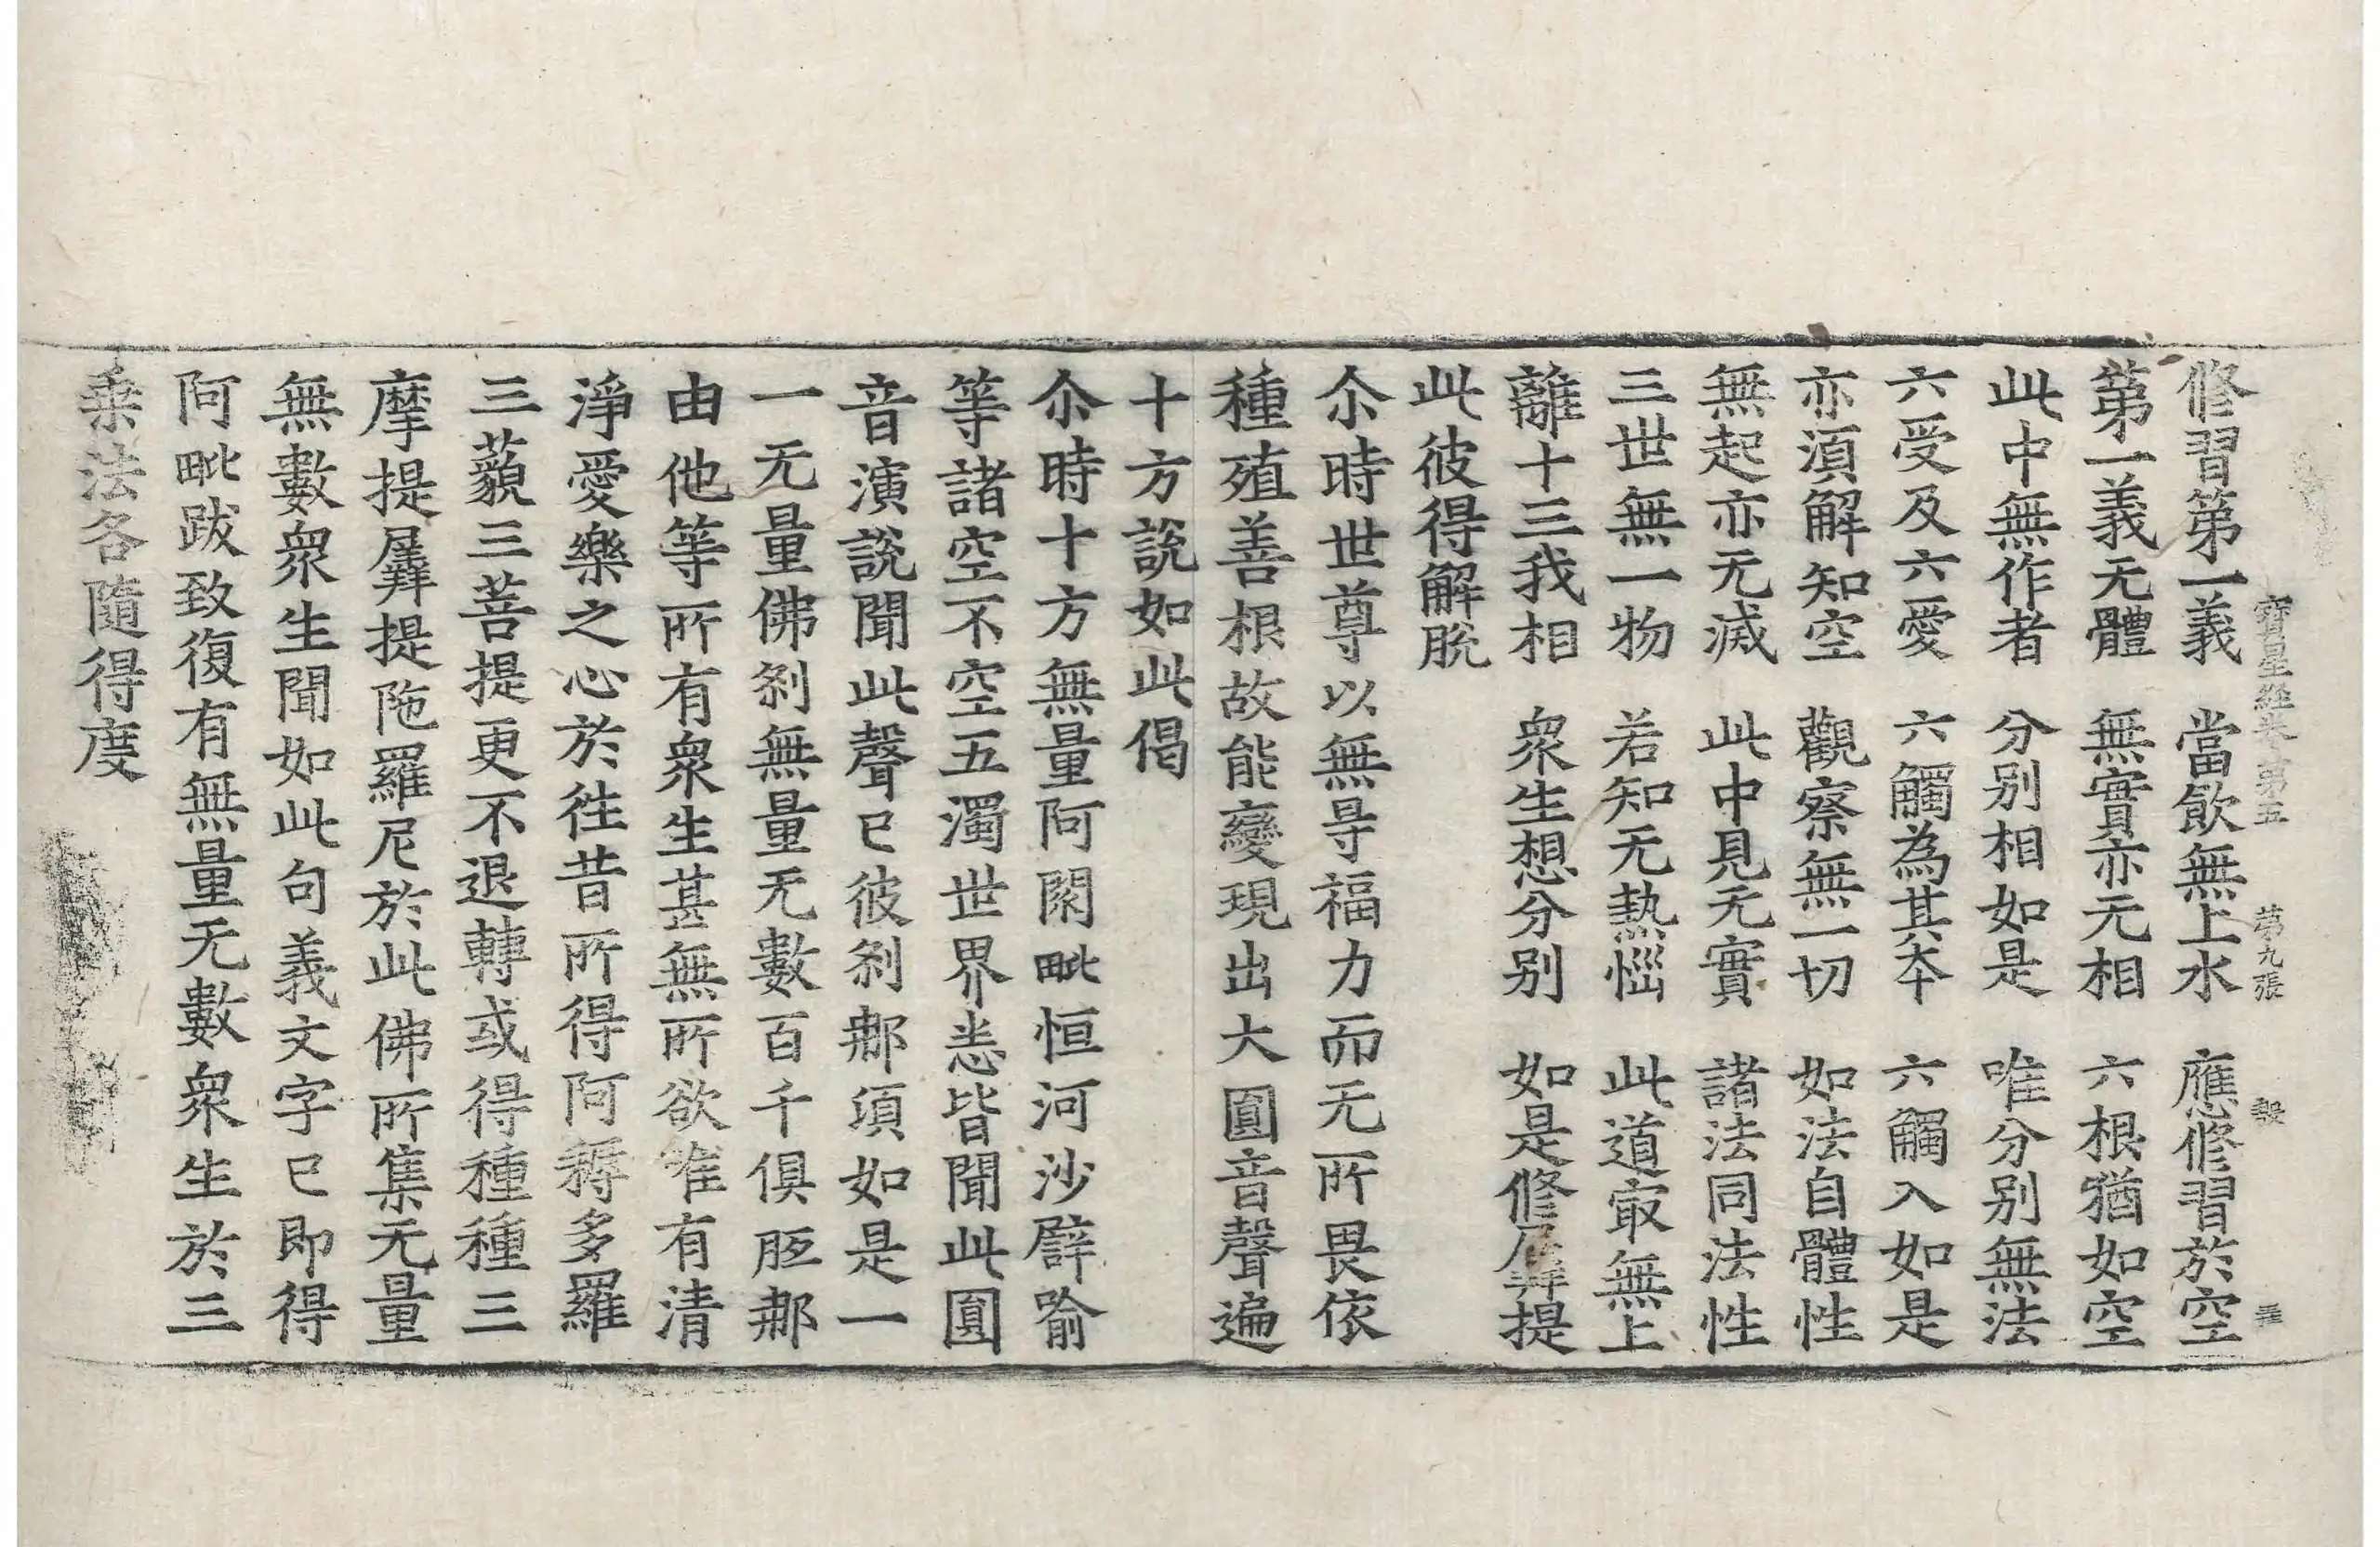 寶星經卷第五 第九張 毀
修習第一義 當飲無上水 應修習於空
苐一義无體 無實亦无相 六根猶如空
此中無作者 分別相如是 唯分別無法
六受及六愛 六觸為其夲 六觸入如是
亦湏解知空 觀察無一切 如法自體性
無起亦无滅 此中見无實 諸法同法性
三世無一物 若知无熱惱 此道㝡無上
離十三我相 衆生想分別 如是修羼提
此彼得解脫
尒時世尊以無㝵福力而无所畏依
種殖善根故能變現出大圓音聲遍
十方說如此偈
尒時十方無量阿閦毗恒河沙譬喻
等諸空不空五濁世界悉皆聞此圓
音演說聞此聲已彼刹𨙻湏如是一
一无量佛刹無量无數百千俱胝𨙻
由他等所有衆生甚無所欲唯有清
淨愛樂之心於徃昔所得阿耨多羅
三藐三菩提更不退轉或得種種三
摩提羼提陁羅尼於此佛所集无量
無數衆生聞如此句義文字已即得
阿毗跋致復有無量无數衆生於三
乗法各隨得度